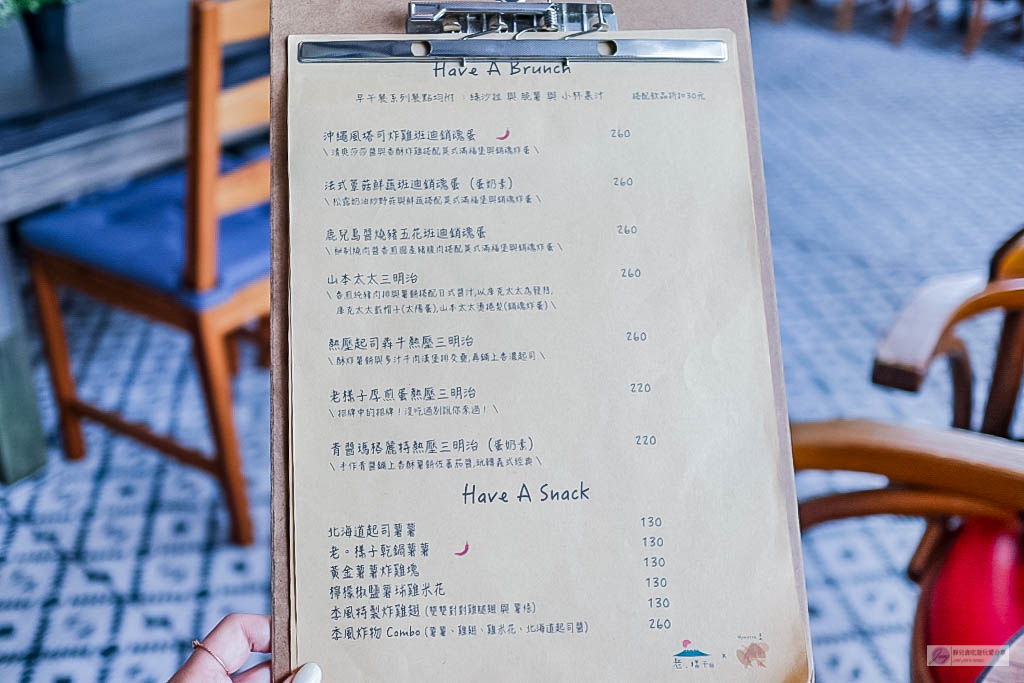 Have A Brunch
早午餐系列餐點均附:綠沙拉 與 脆薯 與 小杯果汁 搭配飲品折扣30元
沖繩風塔可炸雞班迪銷魂蛋 260
\ 清爽莎莎醬與香酥炸雞搭配英式滿福堡與銷魂炸蛋 \
法式蕈菇鮮蔬班迪銷魂蛋 (蛋奶素) 260
\ 松露奶油炒野菇與鮮蔬搭配英式滿福堡與銷魂炸蛋 \
鹿兒島醬燒豬五花班迪銷魂蛋 260
\ 秘制燒肉醬香煎國產豬雞肉搭配英式滿福堡與銷魂炸蛋 \
山本太太三明治 260
\ 香煎純豬肉排與薯餅搭配日式醬汁,以庫克太太為發想,
庫克太太戴帽子(太陽蛋),山本太太燙捲髮(銷魂炸蛋) \
熱壓起司犇牛熱壓三明治 260
\ 酥炸薯餅與多汁牛肉漢堡排交疊,再鋪上香濃起司 \
老樣子厚煎蛋熱壓三明治 220
\ 招牌中的招牌!沒吃過別說你來過! \
青醬瑪格麗特熱壓三明治 (蛋奶素) 220
\ 手作青醬鋪上香酥薯餅佐蕃茄醬,玩轉義式經典 \
Have A Snack
北海道起司薯薯 130
老。樣子乾鍋薯薯 130
黃金薯薯炸雞塊 130
檸檬椒鹽薯球雞米花 130
季風特製炸雞翅 (雙雙對對雞腿翅 與 薯條) 130
季風炸物 Combo (薯薯、雞翅、雞米花、北海道起司醬) 260
老。樣子 x